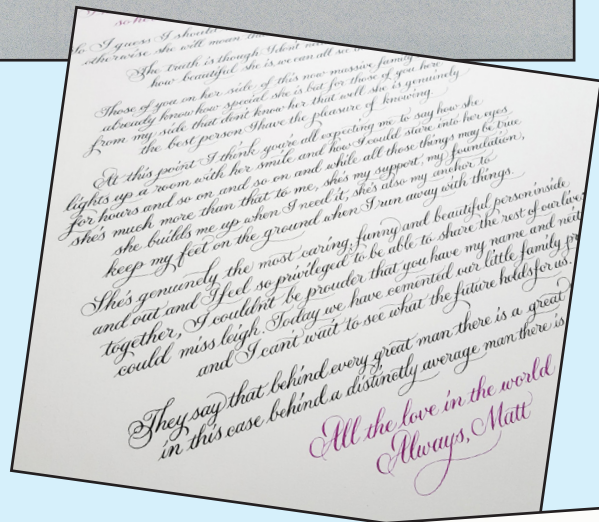 so he
So I guess I should
otherwise she will mean tha
The truth is though I don't ne
how beautiful she is, we can all see
Those of you on her side of this now massive family
already know how special she is but for those of you here
from my side that don't know her that well she is genuinely
the best person I have the pleasure of knowing.
At this point I think you're all expecting me to say how she
lights up a room with her smile and how I could stare into her eyes
for hours and so on and so on and while all those things may be true
she's much more than that to me, she's my support, my foundation,
she builds me up when I need it, she's also my anchor to
keep my feet on the ground when I run away with things.
She's genuinely the most caring, funny and beautiful person inside
and out and I feel so privileged to be able to share the rest of our live
together, I couldn't be prouder that you have my name and neit
could miss leigh. Today we have cemented our little family pr
and I can't wait to see what the future holds for us.
They say that behind every great man there is a great
in this case behind a distinctly average man there is
All the love in the world
Always, Matt